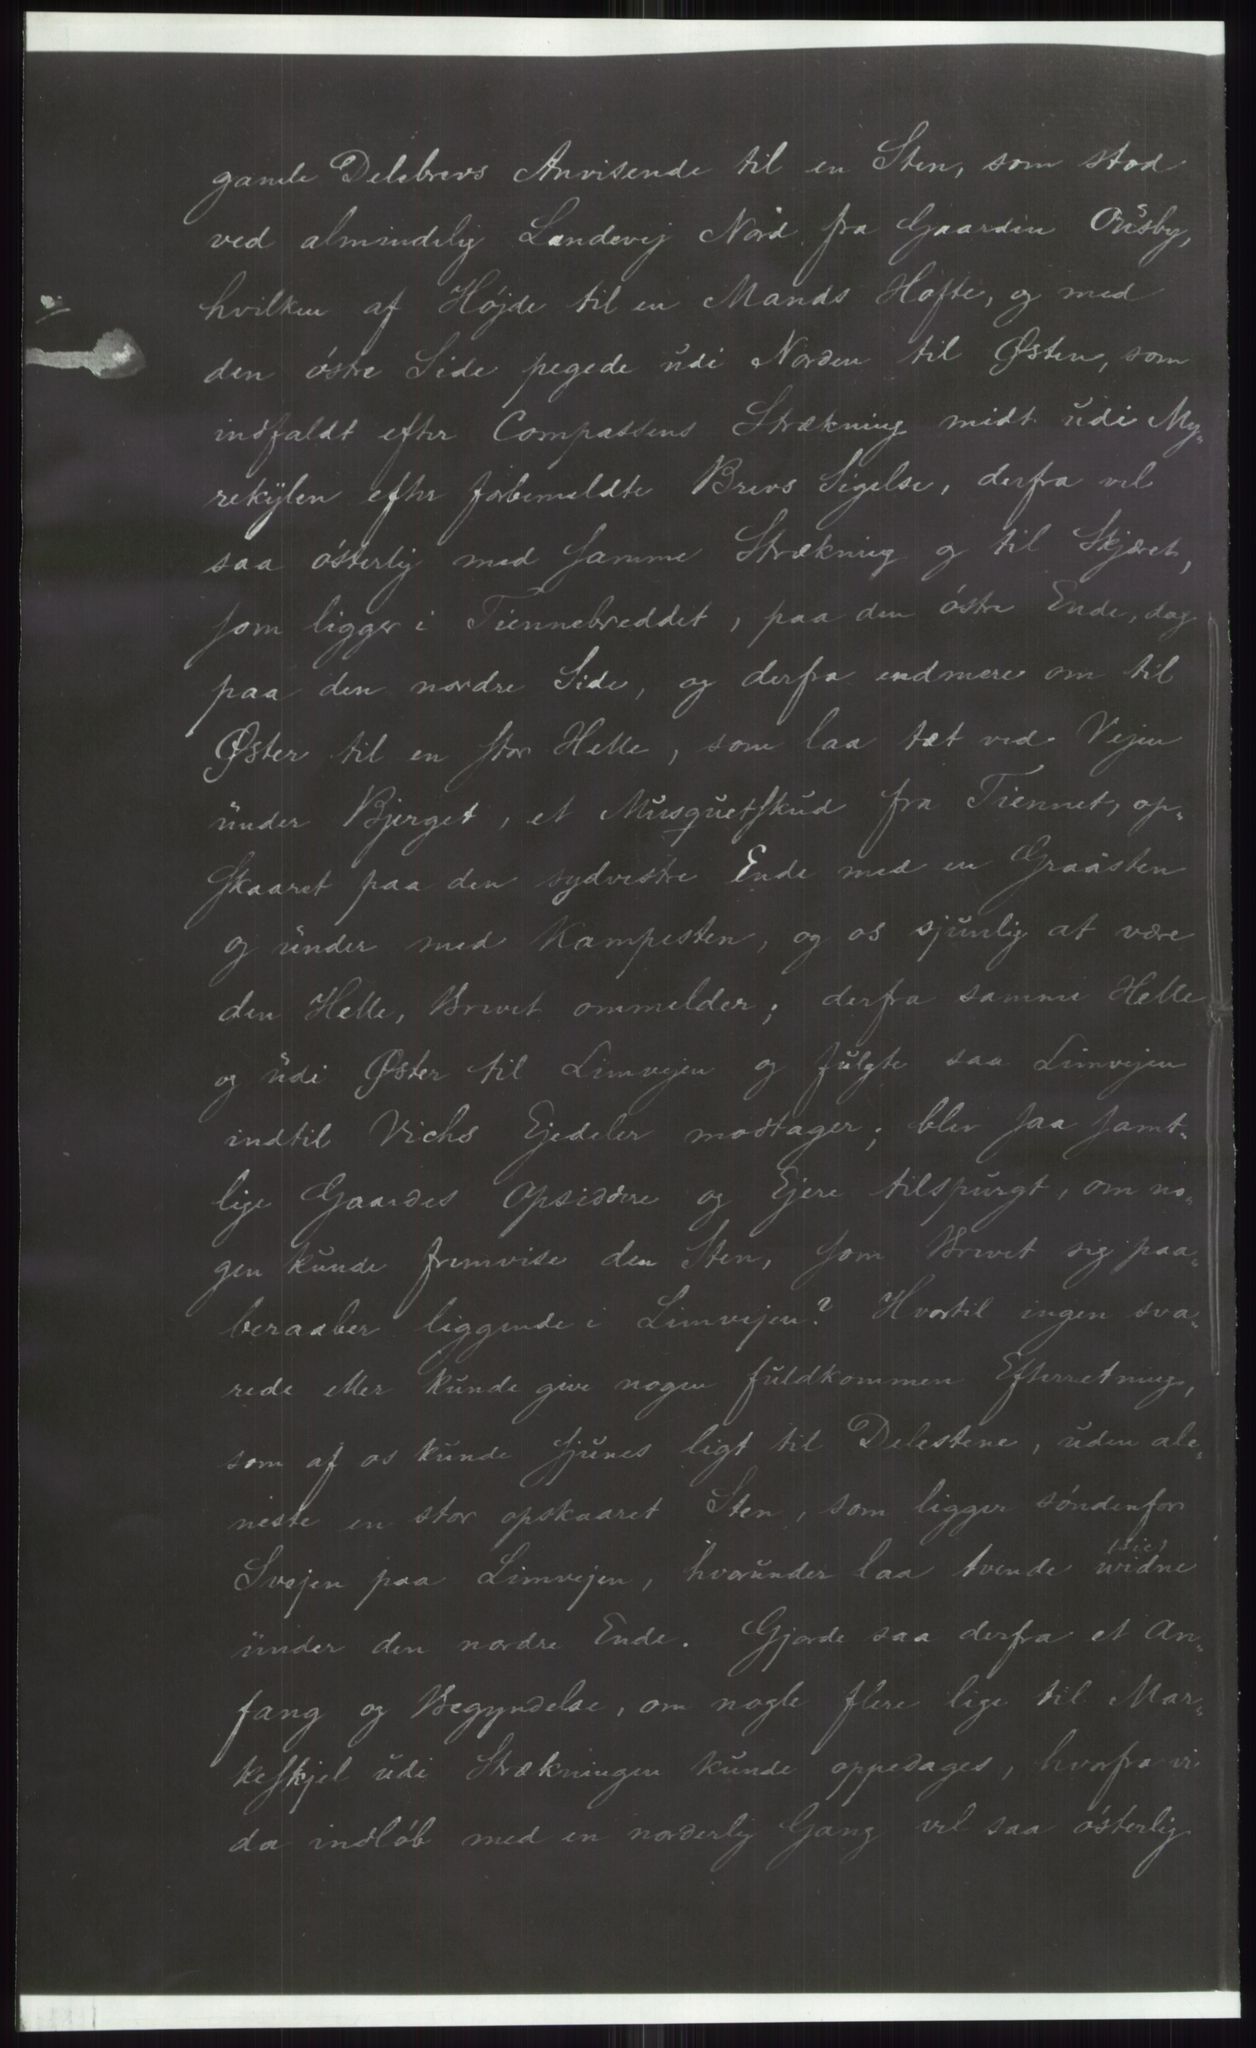 gamle Delebrevs Anvisende til en Sten, som stod
ved almindelig Landevej Nord fra Gaarden Ousby,
hvilken af Højde til en Mands Hofte, og med
den østre Side pegede udi Norden til Østen, som
indfaldt efter Compassens Strækning midt udi My„
rekylen efter forbemeldte Brevs Sigelse, derfra vel
saa østerlig med samme Strækning og til Skjæret,
som ligger i Tiennebreddet, paa den østre Ende, dog
paa den nordre Side, og derfra endmere om til
Øster til en stor Helle, som laa tæt ved Vejen
under Bjerget, et Musquetskud fra Tiennet, op„
skaaret paa den sydvestre Ende med en Graasten
og under med Kampesten, og os sjunlig at være
den Helle, Brevet ommelder; derfra samme Helle
og udi Øster til Limvejen og fulgte saa Limvejen
indtil Vichs Ejedeler modtager; blev saa samt„
lige Gaardes Opsiddere og Ejere tilspurgt, om no„
gen kunde fremvise den Sten, som Brevet sig paa„
beraaber liggende i Limvejen? Hvortil ingen sva„
rede eller kunde give nogen fuldkommen Efterretning,
som af os kunde sjunes ligt til Delestene, uden ale„
neste en stor opskaaret Sten, som ligger søndenfor
Svejen paa Limvejen, hvorunder laa tvende widne (sic)
under den nordre Ende. Gjorde saa derfra et An„
fang og Begyndelse, om nogle flere lige til Mar„
keskjel udi Strækningen kunde oppedages, hvorfra vi
da indløb med en norderlig Gang vel saa østerlig